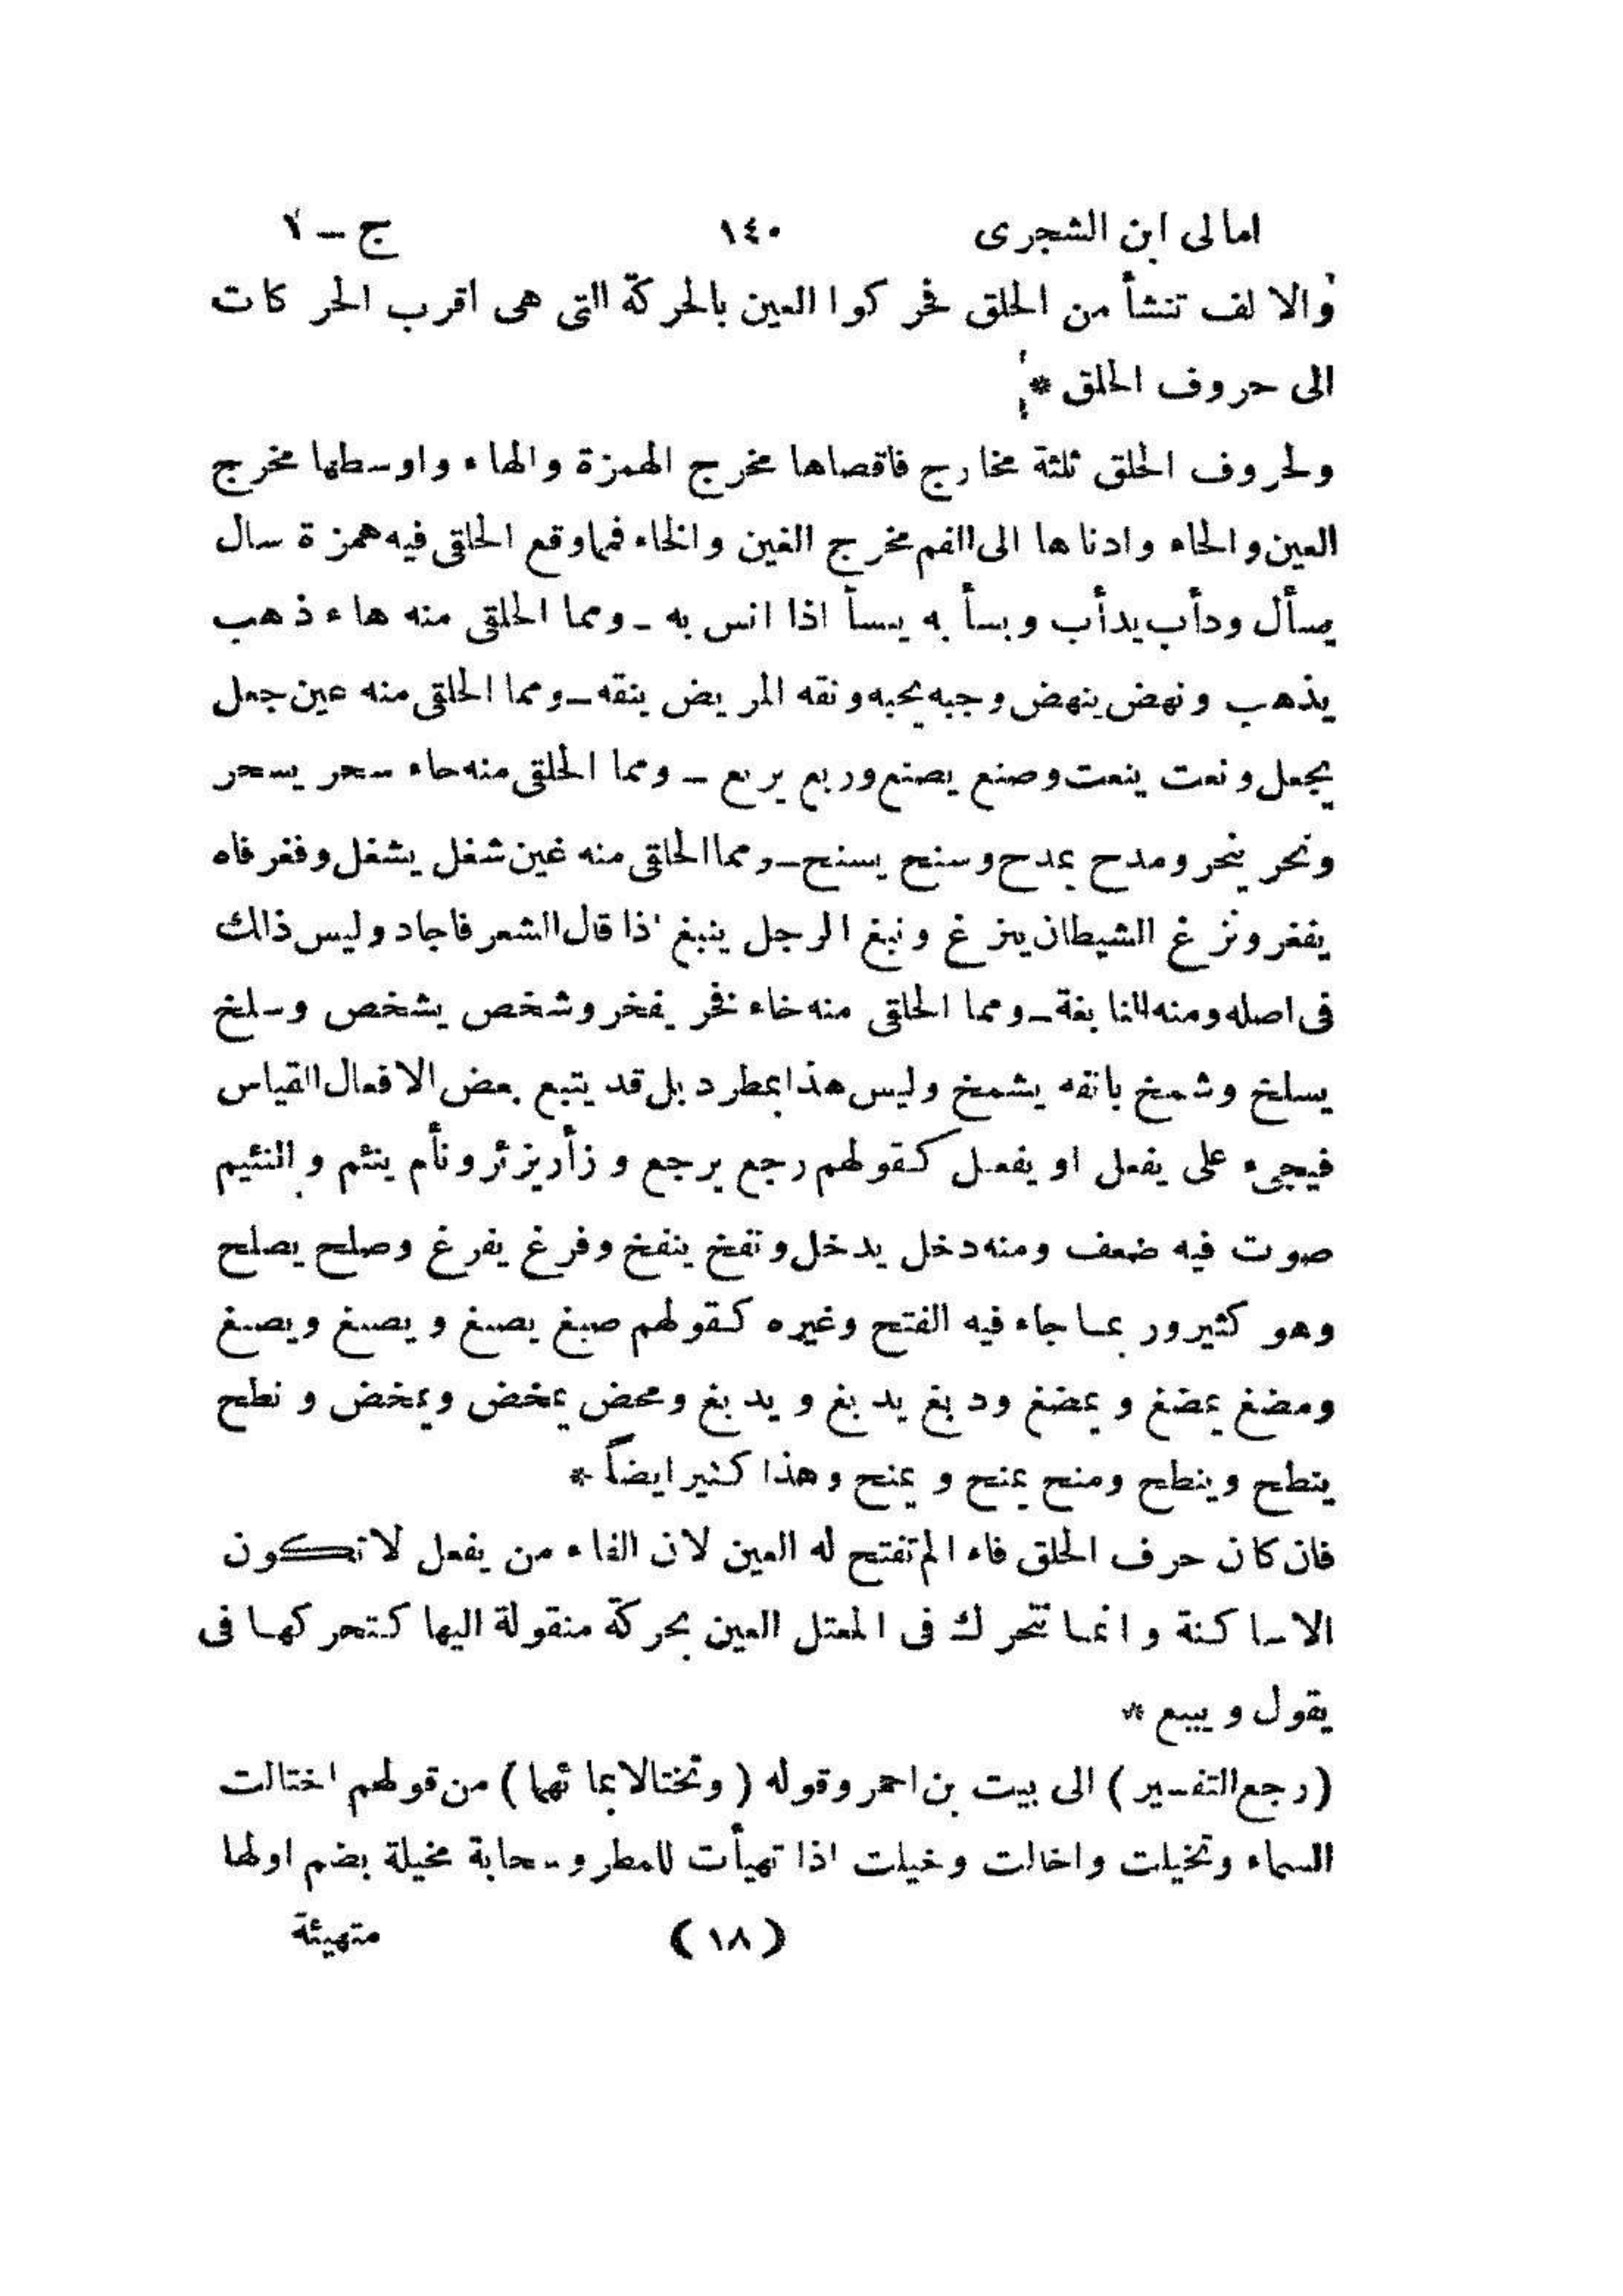 امالى ابن الشجرى ١٤٠ ج – ١
والالف تنشأ من الحلق فحركوا العين بالحركة التى هى اقرب الحركات
الى حروف الحلق *
ولحروف الحلق ثلثة مخارج فاقصاها مخرج الهمزة والهاء واوسطها مخرج
العين والحاء وادناها الى الفم مخرج الغين والخاء فمما وقع الحلقى فيه همزة سأل
يسأل ودأب يدأب وبسأ به يبسأ اذا انس به – ومما الحلقى منه هاء ذهب
يذهب ونهض ينهض وجبه يجبه ونقه المريض ينقه – ومما الحلقى منه عين جعل
يجعل ونعت ينعت وصنع يصنع وربع يربع – ومما الحلقى منه حاء سحر يسحر
ونحر ينحر ومدح يمدح وسنح يسنح – ومما الحلقى منه غين شغل يشغل وفغر فاه
يفغر ونزغ الشيطان ينزغ ونبغ الرجل ينبغ اذا قال الشعر فاجاد وليس ذالك
فى اصله ومنه النابغة – ومما الحلقى منه خاء فخر يفخر وشخص يشخص وسلخ
يسلخ وشمخ بانفه يشمخ وليس هذا بمطرد بل قد يتبع بعض الافعال القياس
فيجىء على يفعل او يفعل كقولهم رجع يرجع وزأر يزئر ونأم ينئم والنئيم
صوت فيه ضعف ومنه دخل يدخل ونفخ ينفخ وفرغ يفرغ وصلح يصلح
وهو كثير وربما جاء فيه الفتح وغيره كقولهم صبغ يصبغ ويصبغ ويصبغ
ومضغ يمضغ ويمضغ ودبغ يدبغ ويدبغ ومخض يمخض ويمخض ونطح
ينطح وينطح ومنح يمنح ويمنح وهذا كثير ايضاً *
فان كان حرف الحلق فاء لم تفتح له العين لان الفاء من يفعل لا تكون
الا ساكنة وانما تتحرك فى المعتل العين بحركة منقولة اليها كتحركها فى
يقول ويبيع *
(رجع التفسير) الى بيت بن احمر وقوله (وتختالا بمائهما) من قولهم اختالت
السماء وتخيلت واخالت وخيلت اذا تهيأت للمطر وسحابة مخيلة بضم اولها
(١٨) متهيئة